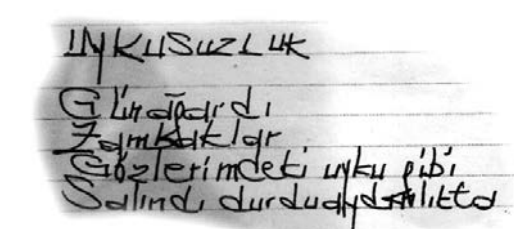 UYKUSUZLUK
Gün ağardı
Zambaklar
Gözlerimdeki uyku gibi
Salındı durdu aydınlıkta